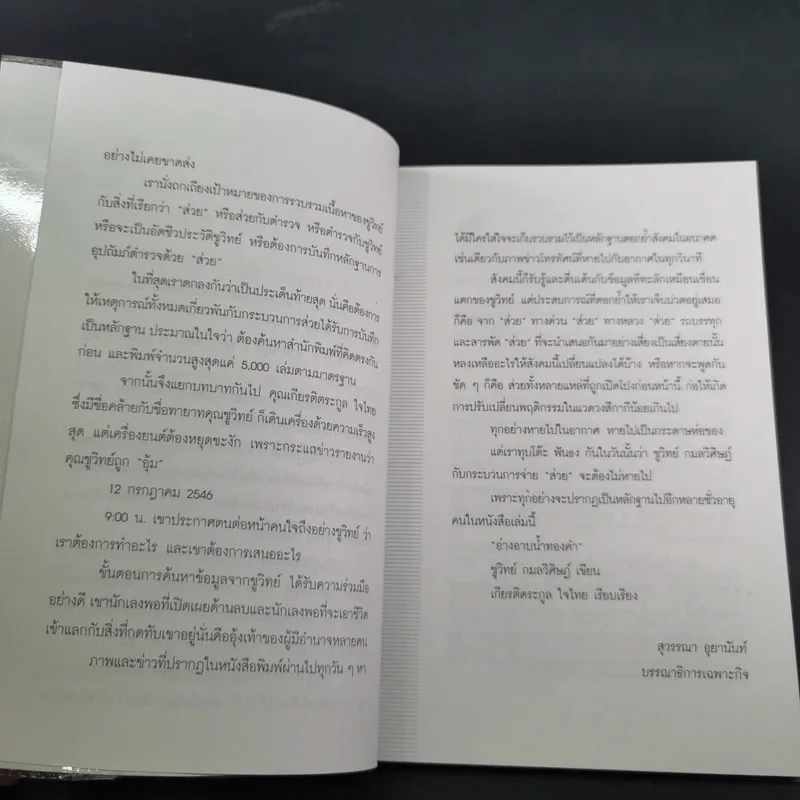 อย่างไม่เคยขาดส่ง
เรานั่งถกเถียงเป้าหมายของการรวบรวมเนื้อหาของชูวิทย์
กับสิ่งที่เรียกว่า "ส่วย" หรือส่วยกับตำรวจ หรือตำรวจกับชูวิทย์
หรือจะเป็นอัตชีวประวัติชูวิทย์ หรือต้องการบันทึกหลักฐานการ
อุปถัมภ์ตำรวจด้วย "ส่วย"
ในที่สุดเราตกลงกันว่าเป็นประเด็นท้ายสุด นั่นคือต้องการ
ให้เหตุการณ์ทั้งหมดเกี่ยวพันกับกระบวนการส่วยได้รับการบันทึก
เป็นหลักฐาน ประมาณในใจว่า ต้องค้นหาสำนักพิมพ์ที่คิดตรงกัน
ก่อน และพิมพ์จำนวนสูงสุดแค่ 5,000 เล่มตามมาตรฐาน
จากนั้นจึงแยกบทบาทกันไป คุณเกียรติตระกูล ใจไทย
ซึ่งมีชื่อคล้ายกับชื่อทายาทคุณชูวิทย์ ก็เดินเครื่องด้วยความเร็วสูง
สุด แต่เครื่องยนต์ต้องหยุดชะงัก เพราะกระแสข่าวรายงานว่า
คุณชูวิทย์ถูก "อุ้ม"
12 กรกฎาคม 2546
9:00 น. เขาประกาศตนต่อหน้าคนใจถึงอย่างชูวิทย์ ว่า
เราต้องการทำอะไร และเขาต้องการเสนออะไร
ขั้นตอนการค้นหาข้อมูลจากชูวิทย์ ได้รับความร่วมมือ
อย่างดี เขานักเลงพอที่เปิดเผยด้านลบและนักเลงพอที่จะเอาชีวิต
เข้าแลกกับสิ่งที่กดทับเขาอยู่นั่นคืออุ้งเท้าของผู้มีอำนาจหลายคน
ภาพและข่าวที่ปรากฏในหนังสือพิมพ์ผ่านไปทุกวัน ๆ หา
ได้มีใครใส่ใจจะเก็บรวบรวมไว้เป็นหลักฐานตอกย้ำสังคมในอนาคต
เช่นเดียวกับภาพข่าวโทรทัศน์ที่หายไปกับอากาศในทุกวินาที
สังคมนี้ก็รับรู้และตื่นเต้นกับข้อมูลที่ทะลักเหมือนเขื่อน
แตกของชูวิทย์ แต่ประสบการณ์ที่ตอกย้ำให้เราเจ็บปวดอยู่เสมอ
ก็คือ จาก "ส่วย" ทางด่วน "ส่วย" ทางหลวง "ส่วย" รถบรรทุก
และสารพัด "ส่วย" ที่จะนำเสนอกันมาอย่างเสี่ยงเป็นเสี่ยงตายนั้น
หลงเหลืออะไรให้สังคมนี้เปลี่ยนแปลงได้บ้าง หรือหากจะพูดกัน
ชัด ๆ ก็คือ ส่วยทั้งหลายแหล่ที่ถูกเปิดโปงก่อนหน้านี้ ก่อให้เกิด
การปรับเปลี่ยนพฤติกรรมในแวดวงสีกากีน้อยเกินไป
ทุกอย่างหายไปในอากาศ หายไปเป็นกระดาษห่อของ
แต่เราทุบโต๊ะ ฟันธง กันในวันนั้นว่า ชูวิทย์ กมลวิศิษฎ์
กับกระบวนการจ่าย "ส่วย" จะต้องไม่หายไป
เพราะทุกอย่างจะปรากฏเป็นหลักฐานไปอีกหลายชั่วอายุ
คนในหนังสือเล่มนี้
"อ่างอาบน้ำทองคำ"
ชูวิทย์ กมลวิศิษฎ์ เขียน
เกียรติตระกูล ใจไทย เรียบเรียง
สุวรรณา อุยานันท์
บรรณาธิการเฉพาะกิจ